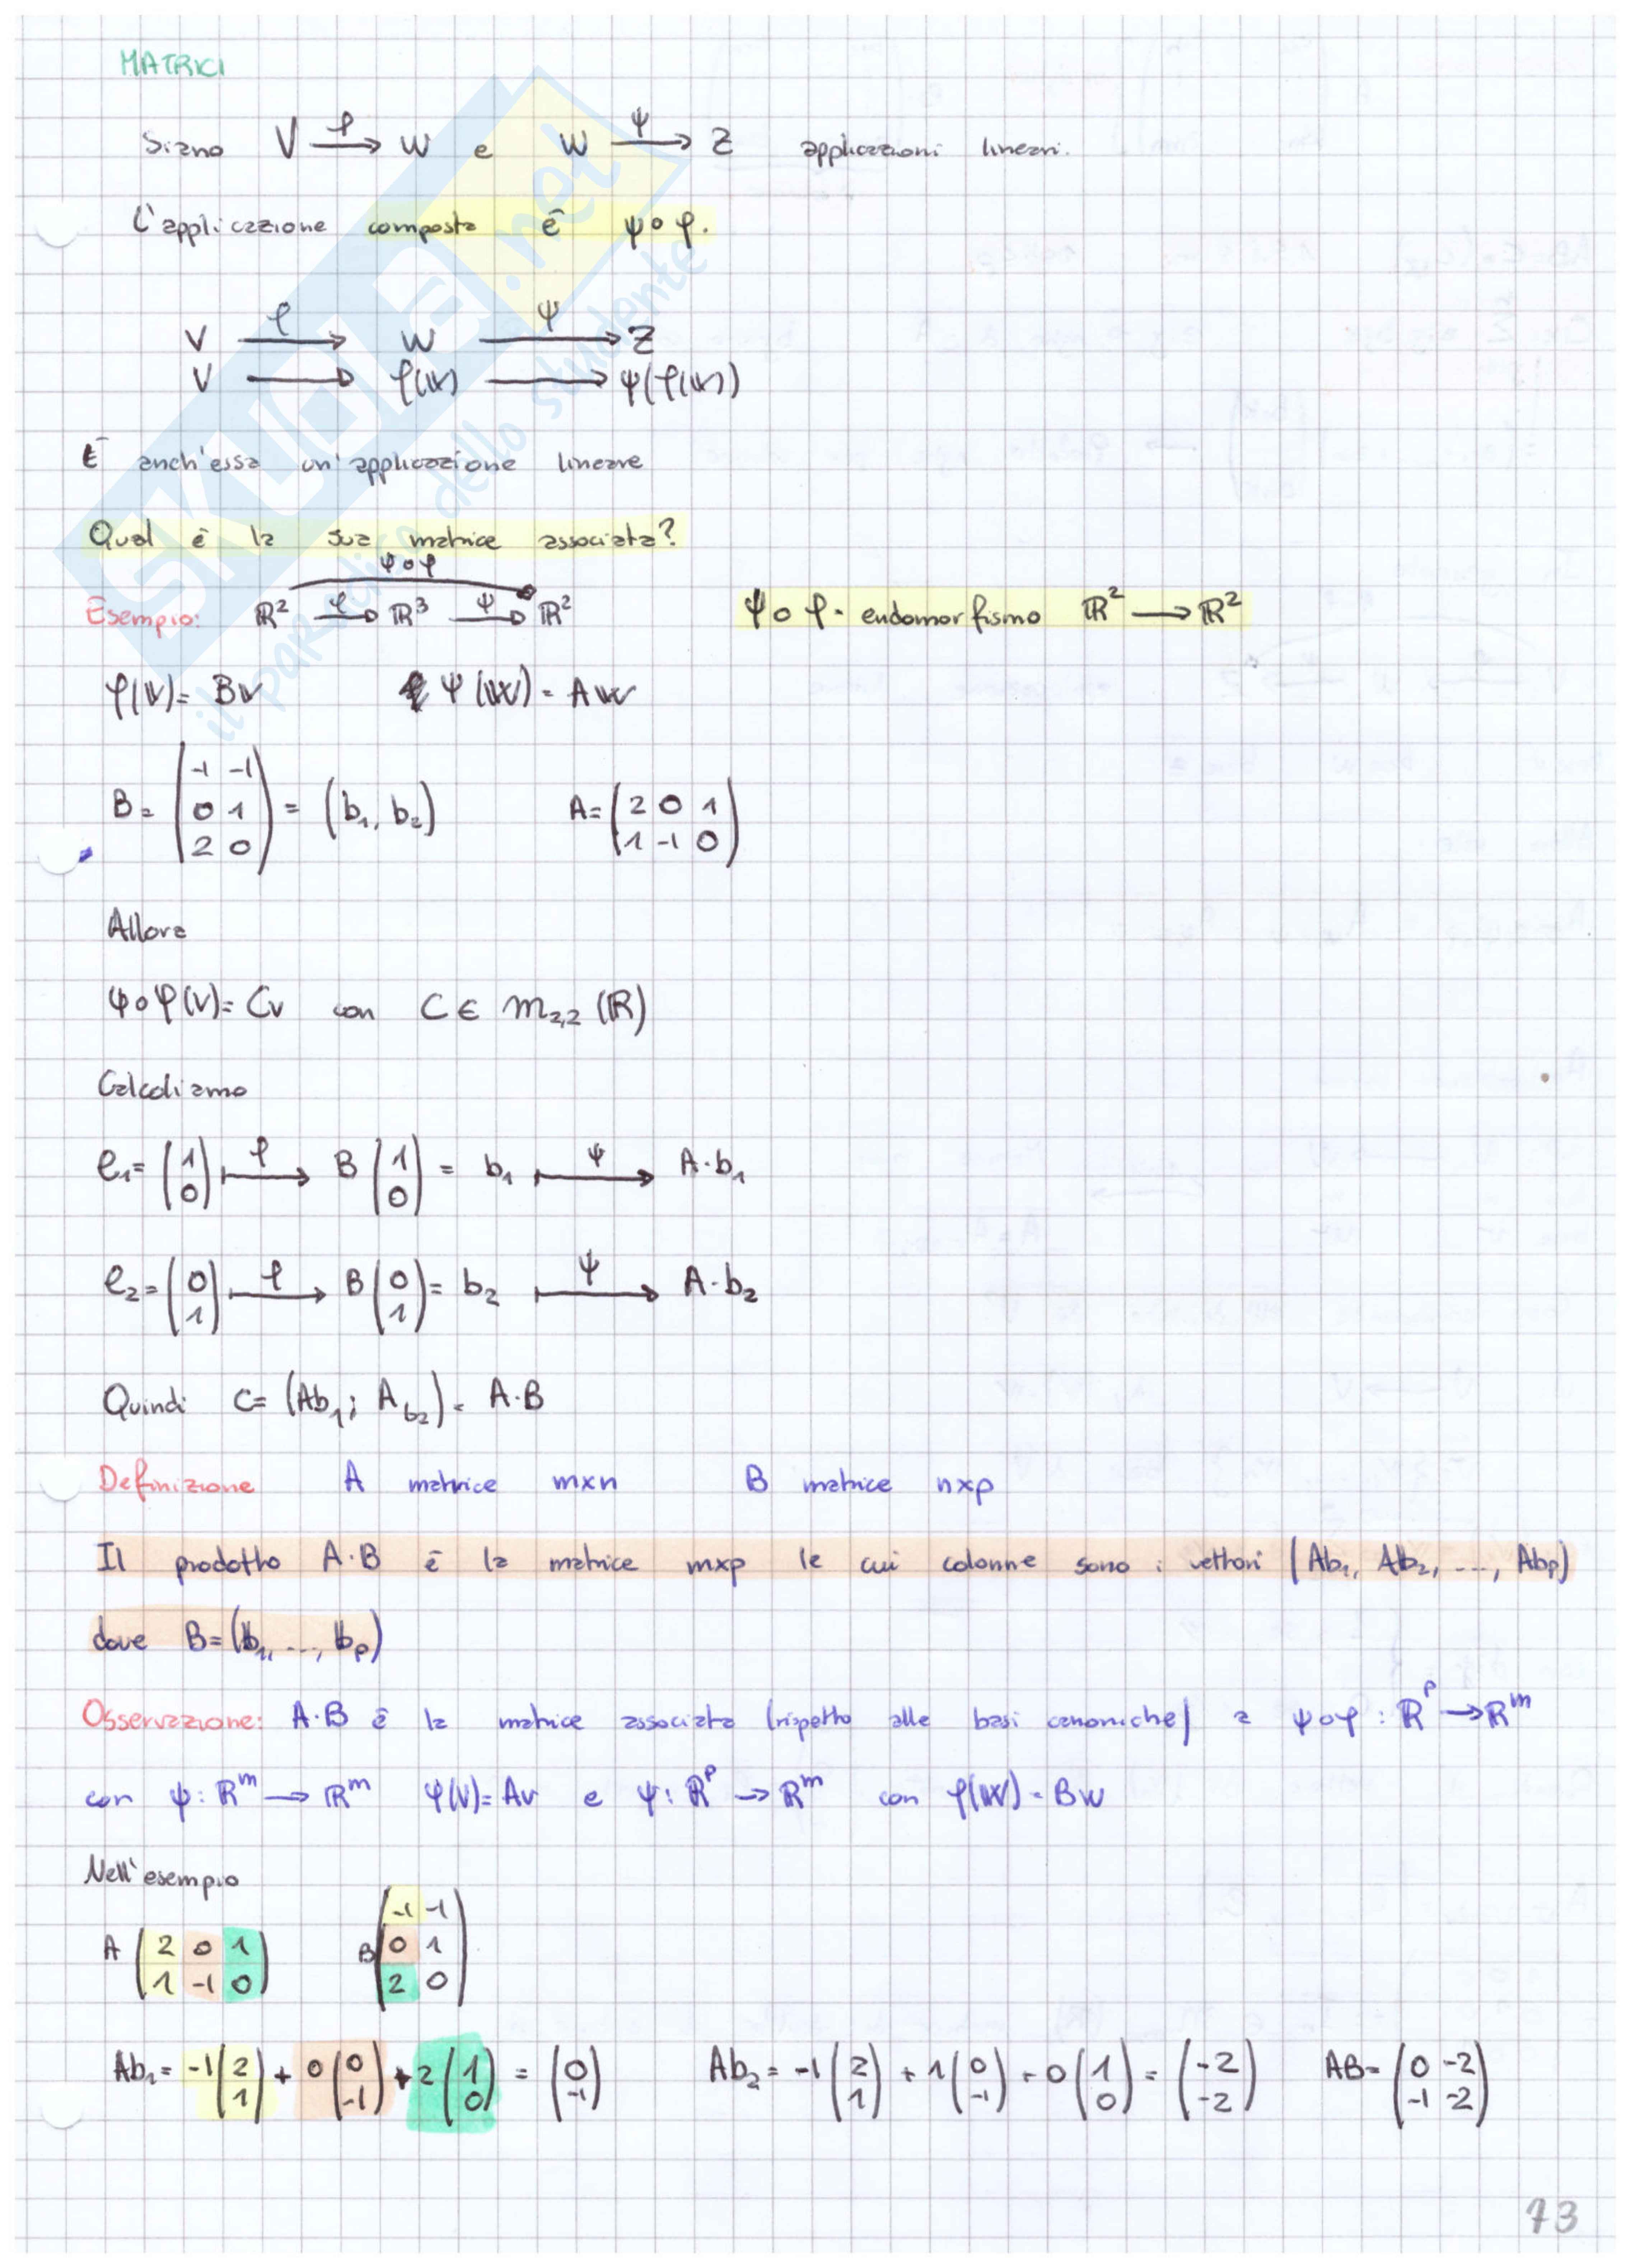 MATRICI
Siano V →φ W e W →ψ Z applicazioni lineari.
L'applicazione composta è ψ∘φ.
V →φ W →ψ Z
V → φ(v) → ψ(φ(v))
È anch'essa un'applicazione lineare
Qual è la sua matrice associata?
ψ∘φ
Esempio: ℝ² →φ ℝ³ →ψ ℝ² ψ∘φ - endomorfismo ℝ² → ℝ²
φ(v) = Bv ψ(w) = Aw
B = (-1 -1; 0 1; 2 0) = (b₁, b₂) A = (2 0 1; 1 -1 0)
Allora
ψ∘φ(v) = Cv con C ∈ M₂,₂(ℝ)
Calcoliamo
e₁ = (1; 0) ↦φ B (1; 0) = b₁ ↦ψ A·b₁
e₂ = (0; 1) ↦φ B (0; 1) = b₂ ↦ψ A·b₂
Quindi C = (Ab₁; Ab₂) = A·B
Definizione A matrice mxn B matrice nxp
Il prodotto A·B è la matrice mxp le cui colonne sono i vettori (Ab₁, Ab₂, ..., Abp)
dove B = (b₁, ..., bp)
Osservazione: A·B è la matrice associata (rispetto alle basi canoniche) a ψ∘φ : ℝᵖ → ℝᵐ
con ψ : ℝᵐ → ℝᵐ φ(v) = Av e ψ : ℝᵖ → ℝᵐ con φ(w) = Bw
Nell'esempio
A (2 0 1; 1 -1 0) B (-1 -1; 0 1; 2 0)
Ab₁ = -1 (2; 1) + 0 (0; -1) + 2 (1; 0) = (0; -1) Ab₂ = -1 (2; 1) + 1 (0; -1) + 0 (1; 0) = (-2; -2) AB = (0 -2; -1 -2)
73
SKUOLA.net
il paradiso dello studente